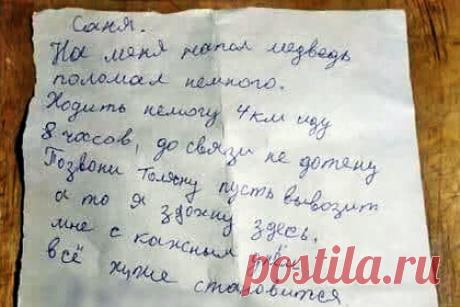 Саня.
На меня напал медведь
поломал немного.
Ходить немогу 4 км иду
8 часов, до связи не дотену
Позвони Толяну пусть вывозит
а то я здохну здесь.
мне с кажным днём
всё хуже становится
postila.ru